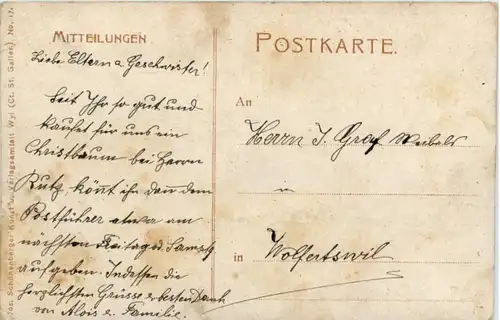 MITTEILUNGEN
Liebe Eltern & Geschwister!
Seit Ihr so gut und
kaufet für uns ein
Christbaum bei Herrn
Rutz, könt ihn dan dem
Postführer etwa am
nächsten Freitag od. Samstg
aufgeben. Indessen die
herzlichsten Grüsse & besten Dank
von Alois & Familie.
POSTKARTE.
An
Herrn J. Graf Weibels
in
in Wolfertswil
Jos. Schönenberger Kunst u. Verlagsanstalt Wyl (Ct. St. Gallen) No.